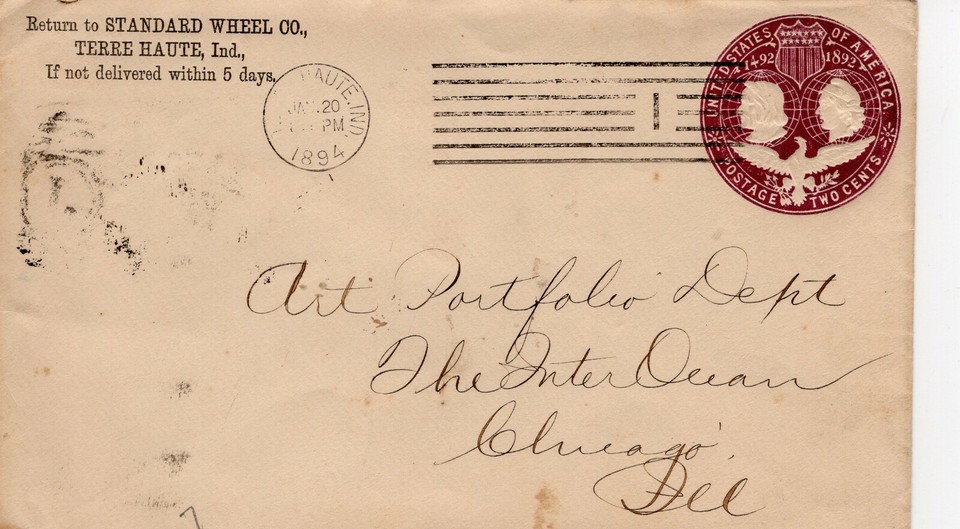 Return to STANDARD WHEEL CO.,
TERRE HAUTE, Ind.,
If not delivered within 5 days.
HAUTE. IND
JAN. 20
PM
1894
UNITED STATES OF AMERICA.
1492 1892
POSTAGE TWO CENTS.
Art Portfolio Dept
The Inter Ocean
Chicago
Ill